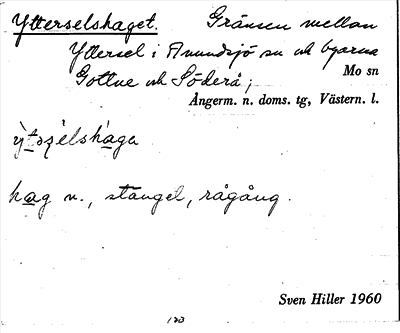 Ytterselshaget. Gränsen mellan
Yttersel i Anundsjö sn och byarna
Gottne och Söderå;
Mo sn
Ångerm. n. doms. tg, Västern. l.
hag n., stängsel, rågång.
Sven Hiller 1960